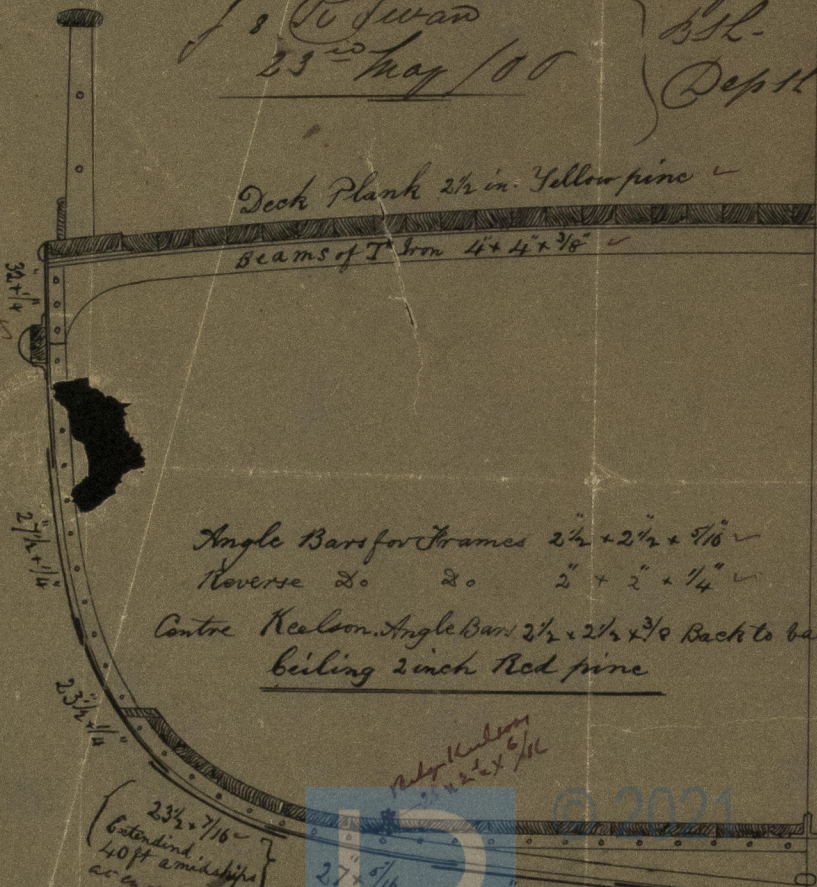 R Swan
23rd May /00
Depth
Deck Plank 2½ in. Yellow pine
Beams of T Iron 4" + 4" + 3/8"
32 + 1/4"
Angle Bars for Frames 2"½ + 2"½ + 5/16"
Reverse Do Do 2" + 2" + 1/4"
27"½ + 1/4"
Centre Keelson. Angle Bars 2½ x 2½ x 3/8 Back to ba
Ceiling 2 inch Red pine
23"½ + 1/4"
Bilge Keelson
© 2021
23½ + 7/16
Extending
40 ft amidships
27" + 5/16